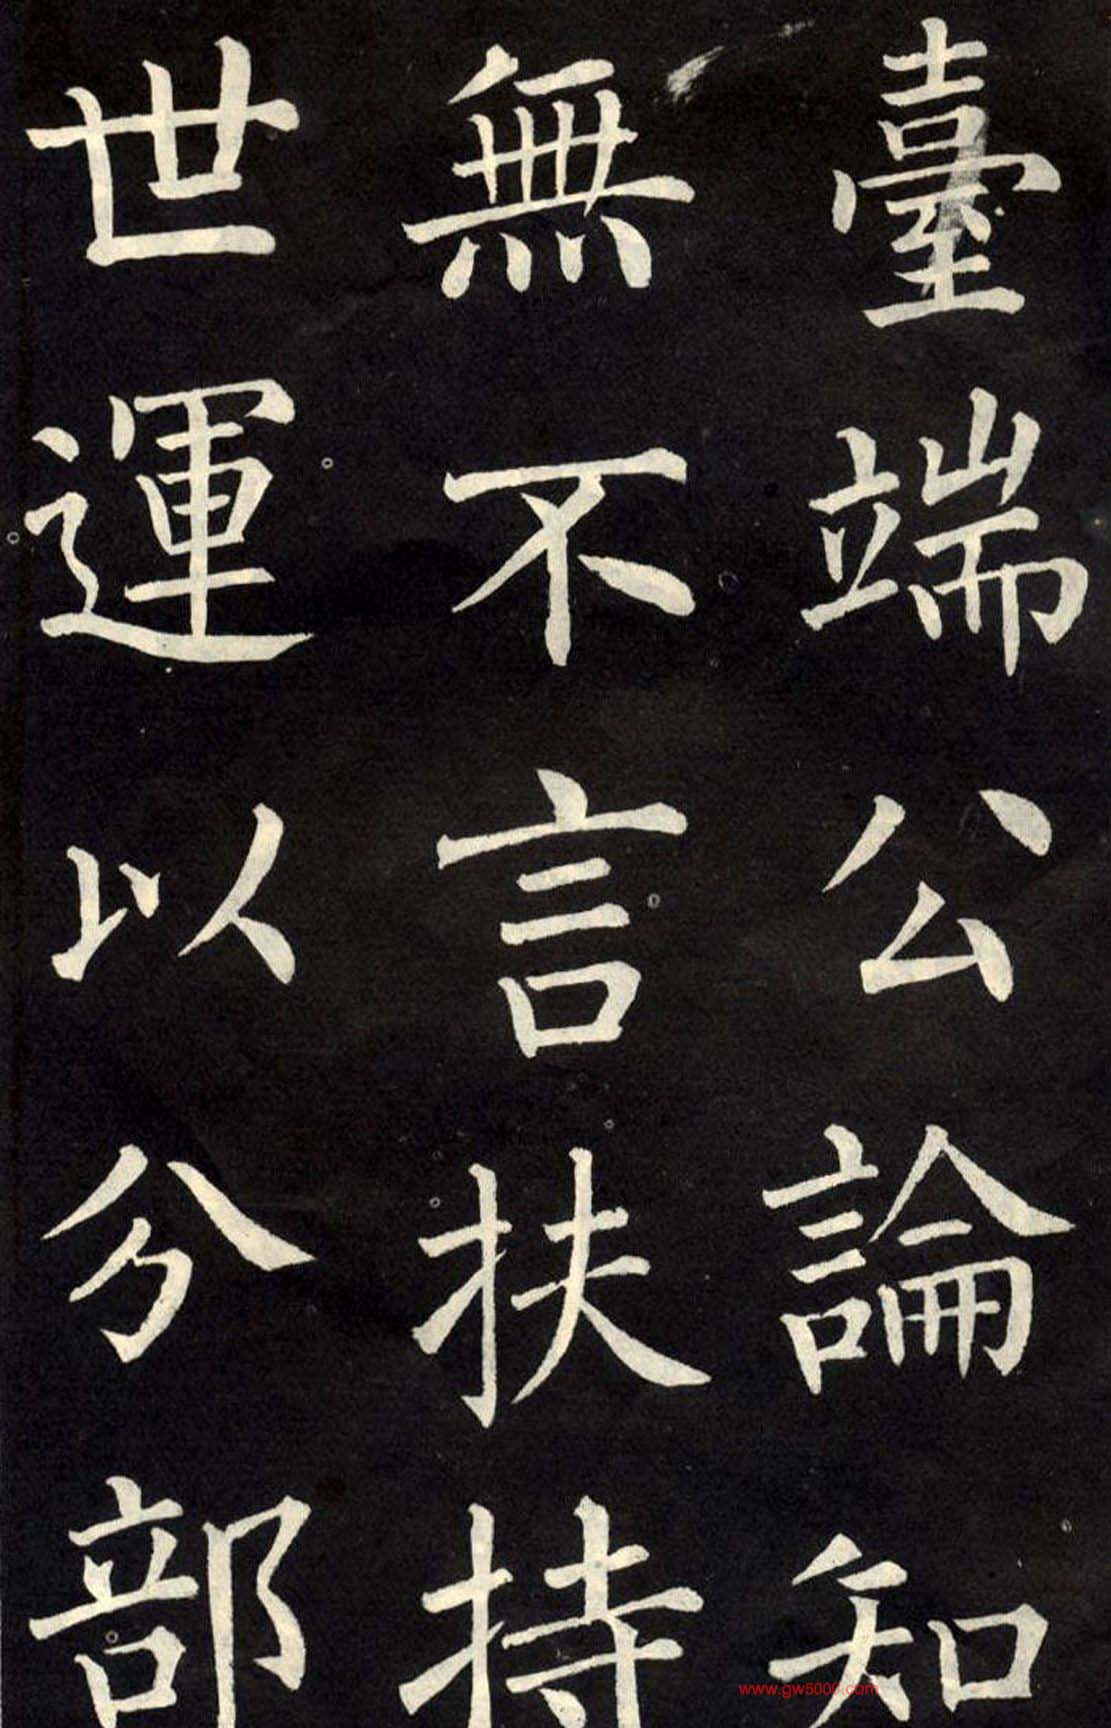 臺端公論知
無不言扶持
世運以分部
www.gw5000.com